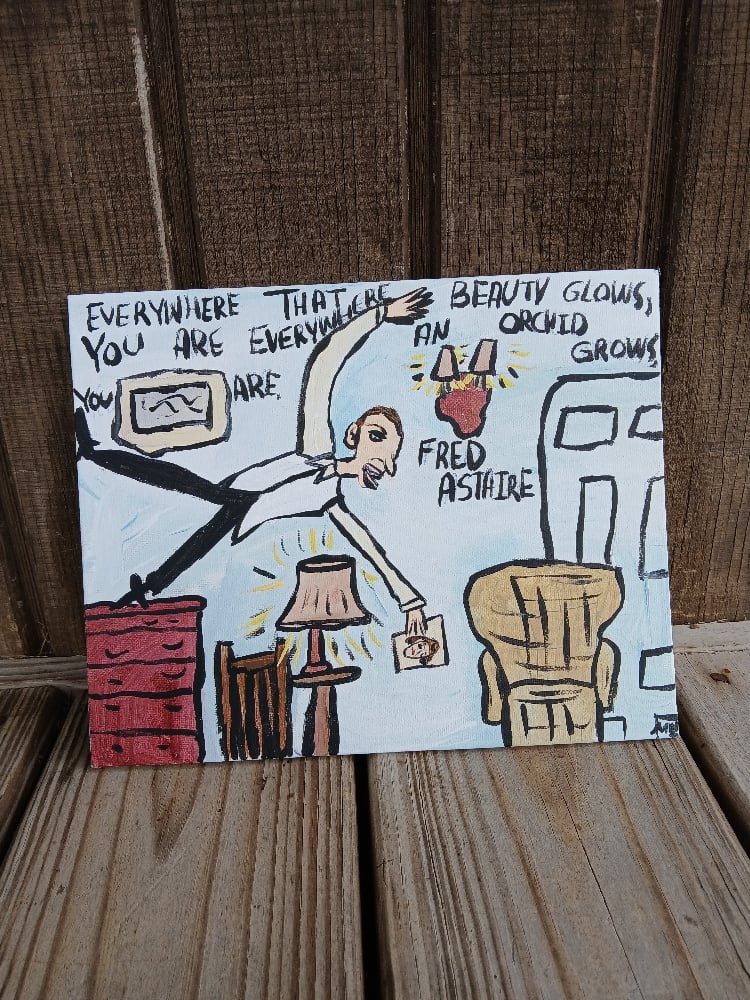 EVERYWHERE THAT BEAUTY GLOWS,
YOU ARE EVERYWHERE AN ORCHID
GROWS,
YOU ARE,
FRED
ASTAIRE